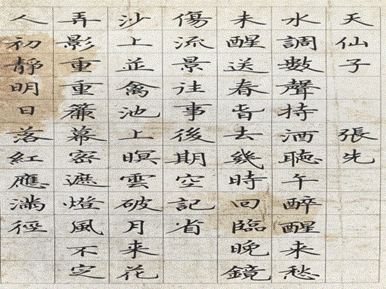 天仙子 張先
水調數聲持酒聽午醉醒来愁
未醒送春旾去幾時回臨晚鏡
傷流景往事後期空記省
沙上並禽池上暝雲破月来花
弄影重重簾幕密遮燈風不定
人初靜明日落紅應滿徑